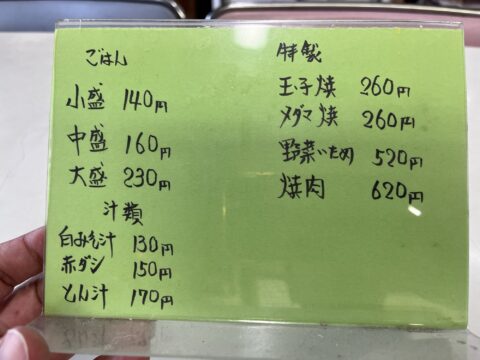 ごはん
小盛 140円
中盛 160円
大盛 230円
汁類
白みそ汁 130円
赤ダシ 150円
とん汁 170円
特製
玉子焼 260円
メダマ焼 260円
野菜いため 520円
焼肉 620円